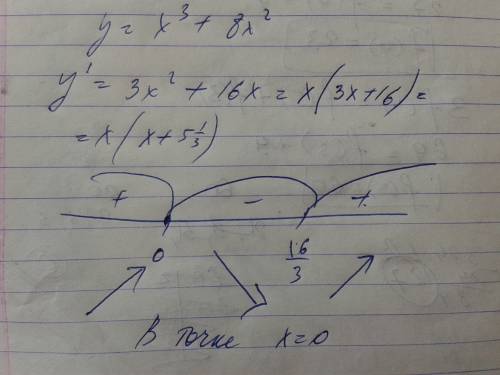 y = x³ + 8x²
y' = 3x² + 16x = x(3x+16) =
= x(x + 5 1/3)
+ - +
0 16/3
В точке x=0